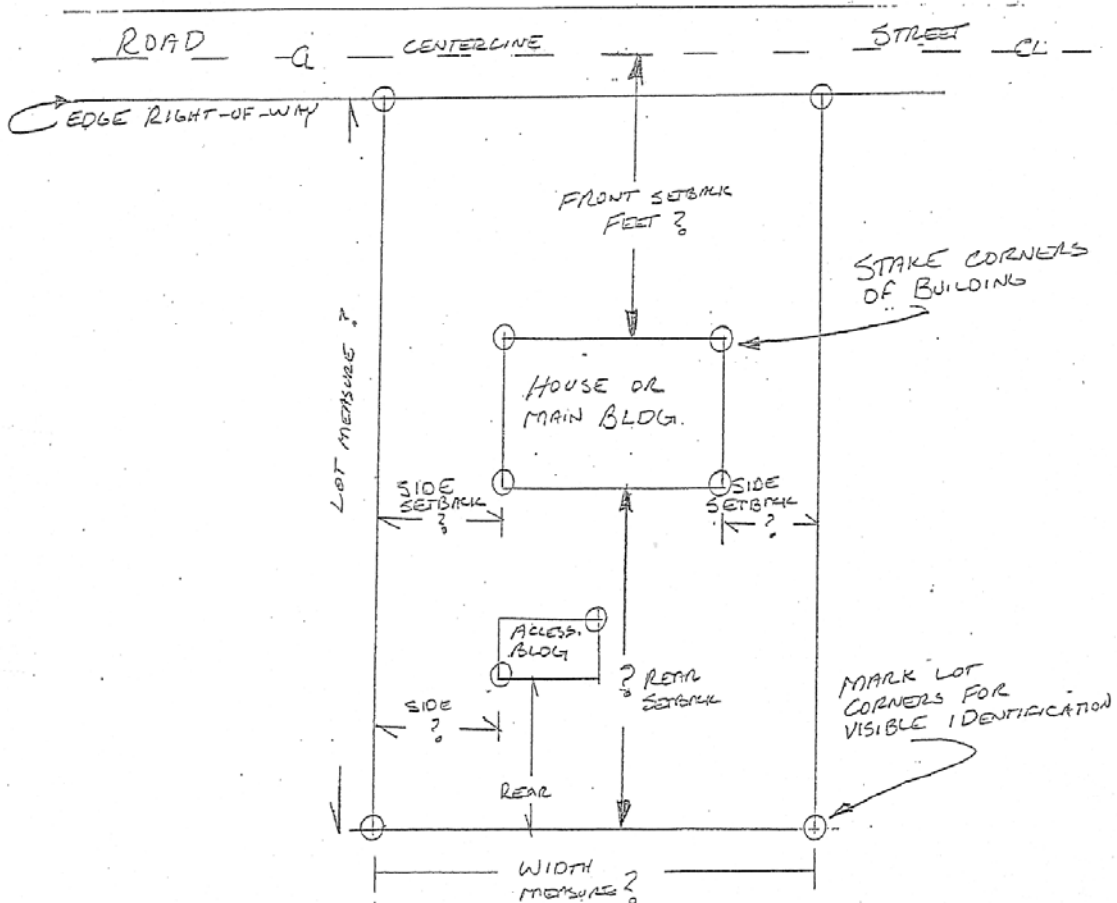 ROAD
CL
CENTERLINE
STREET
CL
EDGE RIGHT-OF-WAY
FRONT SETBACK
FEET ?
STAKE CORNERS
OF BUILDING
LOT MEASURE ?
HOUSE OR
MAIN BLDG.
SIDE
SETBACK
?
SIDE
SETBACK
?
ACCESS.
BLDG
? REAR
SETBACK
SIDE
?
REAR
MARK LOT
CORNERS FOR
VISIBLE IDENTIFICATION
WIDTH
MEASURE ?